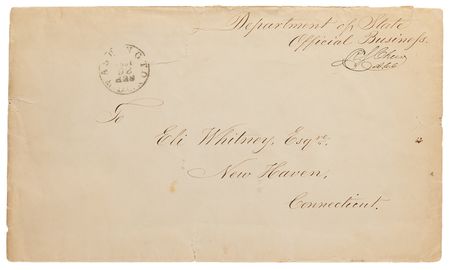 Department of State
Official Business.
WASHINGTON
SEP
26
To
Eli Whitney, Esqre.
New Haven,
Connecticut.